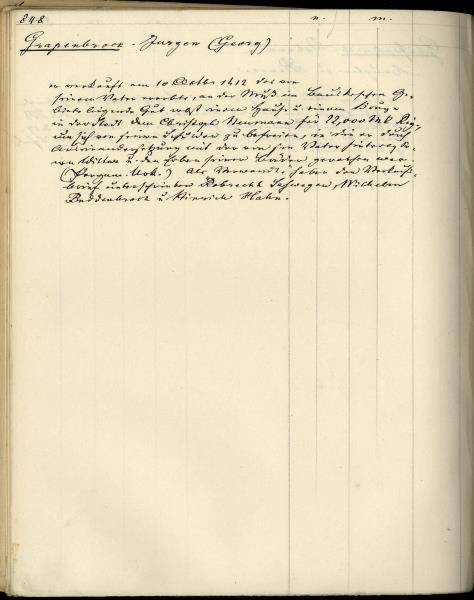 848 n. m.
Grapenbrock - Jurgen (Georg)
er verkauft am 10 October 1412 das von
seinem Vater ererbte, an der Muß im Bauskeschen Ge-
biete liegende Gut nebst einem Hause u. einem
in der Stadt dem Christoph Neumann für 22,000 Mk Rig.
um sich von seinen Schulden zu befreien, in die er durch
Auseinandersetzung mit der von sein Vater hinterlasse-
nen Wittwe u. den Erben seiner Brüder gerathen war.
(Pergam. Urk.) Als Verwandte haben den Verkaufs-
brief unterschrieben Robrecht Wilhelm
Buddenbrock u Hinrich Hahn.